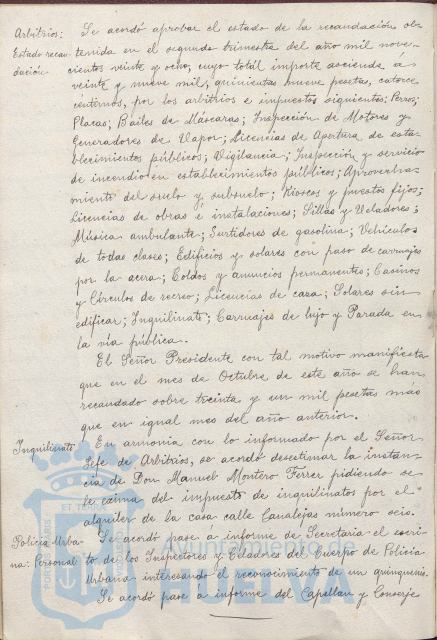 Arbitrios: Se acordó aprobar el estado de la recaudación ob-
Estado recau- tenida en el segundo trimestre del año mil nove-
dación. cientos veinte y ocho, cuyo total importe asciende a
veinte y nueve mil, quinientas nueve pesetas, catorce
céntimos, por los arbitrios e impuestos siguientes: Perros;
Placas; Bailes de Máscaras; Inspección de Motores y
Generadores de Vapor; Licencias de Apertura de esta-
blecimientos públicos; Vigilancia; Inspección y servicio
de incendio en establecimientos públicos; Aprovecha-
miento del suelo y subsuelo; Kioscos y puestos fijos;
Licencias de obras e instalaciones; Sillas y Veladores;
Música ambulante; Surtidores de gasolina; Vehículos
de todas clases; Edificios y solares con paso de carruajes
por la acera; Toldos y anuncios permanentes; Casinos
y Círculos de recreo; Licencias de caza; Solares sin
edificar; Inquilinato; Carruajes de lujo y Parada en
la vía pública.
El Señor Presidente con tal motivo manifiesta
que en el mes de Octubre de este año se han
recaudado sobre treinta y un mil pesetas más
que en igual mes del año anterior.
Inquilinato En armonía con lo informado por el Señor
Jefe de Arbitrios, se acordó desestimar la instan-
cia de Don Manuel Montero Ferrer pidiendo se
le exima del impuesto de inquilinatos por el
alquiler de la casa calle Canalejas número seis.
Policía Urba- Se acordó pase á informe de Secretaría el escri-
na: Personal to de los Inspectores y Celadores del Cuerpo de Policía
Urbana interesando el reconocimiento de un quinquenio.
Se acordó pase á informe del Capellan y Conserje